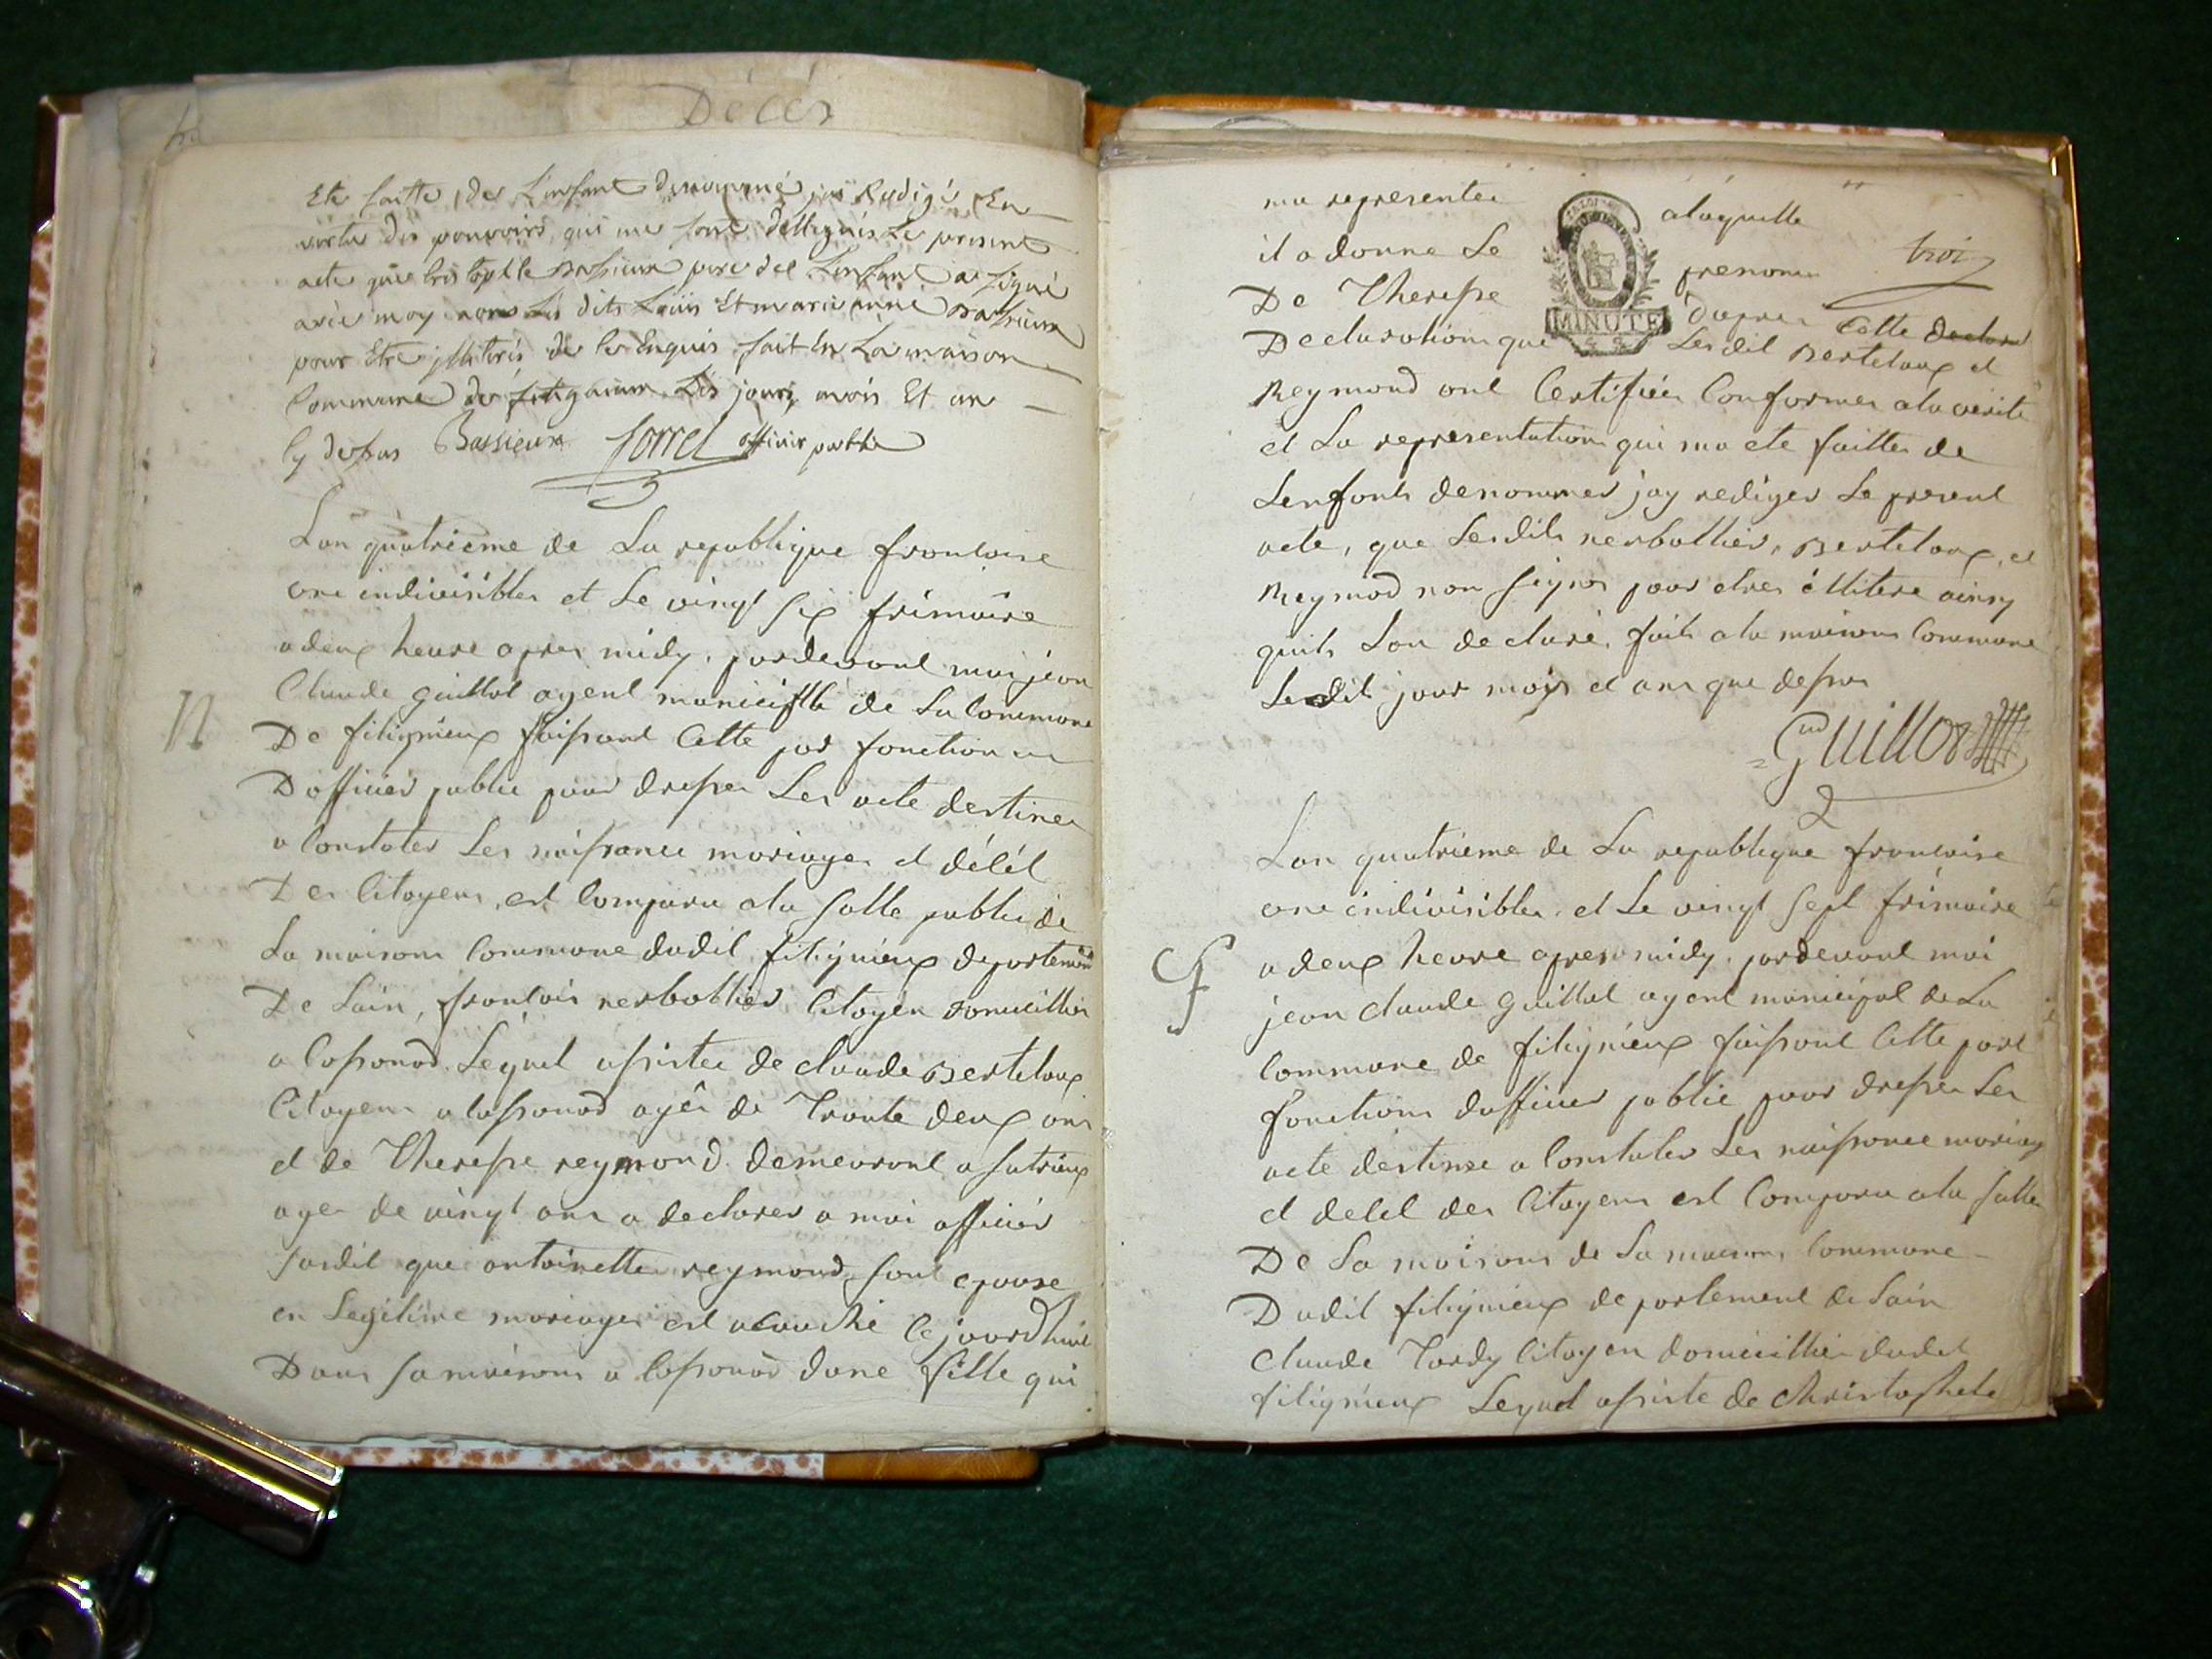 Décés
Ete faitte, de L'enfant denommé j'ai Redigé En
vertu des pouvoirs qui me sont dellegués Le present
acte que Cristople Bassieux pere del Lenfant a signé
avec moy non Les dits Louis Et marie anne Bassieux
pour Etre jlliterés de ce Enquis fait En La maison
Commune de fitigneux Les jours mois Et an
Cy dessus Bassieux Sorrel officier public
Lan quatrieme de La republique francoise
une indivisibles et Le vingt six frimaire
a deux heure apres midy. pardevant moi jean
Claude guillot agent municiplle de La Commune
N
De fitigneux faissant Cette par fonction
D officier public pour dresser Les acte destiner
a Constater Les naissance mariages et décét
Des Citoyens, est Comparu ala salle public de
La maisons Commune dudit fitigneux departement
De Lain, francois nerbollier Citoyen domicillier
a Cossonod Lequel assistee de claude Berteloux
Citoyen a lassonod agée de Trante deux ans
et de Theresse reymond demeurant a Sutrieux
agee de vingt ans a declarer a moi officier
susdit que antoinette reymond sont epouse
en Legitime mariages est acouché Cejourdhuit
Dans sa maisons a Cossonod dune fille qui
ma representée alaquelle
il a donne Le prenom
troiz
De Theresse Dapres Cette declara
Declarations que Lesdit Berteloux et
Reymond ont Certifiées Conformes ala verite
et La representations qui ma ete faittes de
Lenfants denommes jay rediges Le present
acte, que Lesdits nerbollier, Berteloux, et
Reymod non signer pour etres éllitere ainsy
quils Lon declaré, faits a la maisons Commune
Lesdit jour mois et ans que dessus
Guillot
2
Lan quatrieme de La republique francoise
une indivisibles. et Le vingt sept frimaire
a deux heure apres midy. pardevant moi
jean claude guillot agent municipal de La
Commune de fitigneux faissant Cette part
fonctions dofficier publié pour dresser Les
acte destinse a Constater Les naissance mariag
et decet des Citoyens est Comparu ala salle
De La maisons de La maisons Commune
Dudit fitigneux departement de Lain
Claude Tardy Citoyen domicillier dudit
fitigneux Lequel assiste de christophele
MINUTE